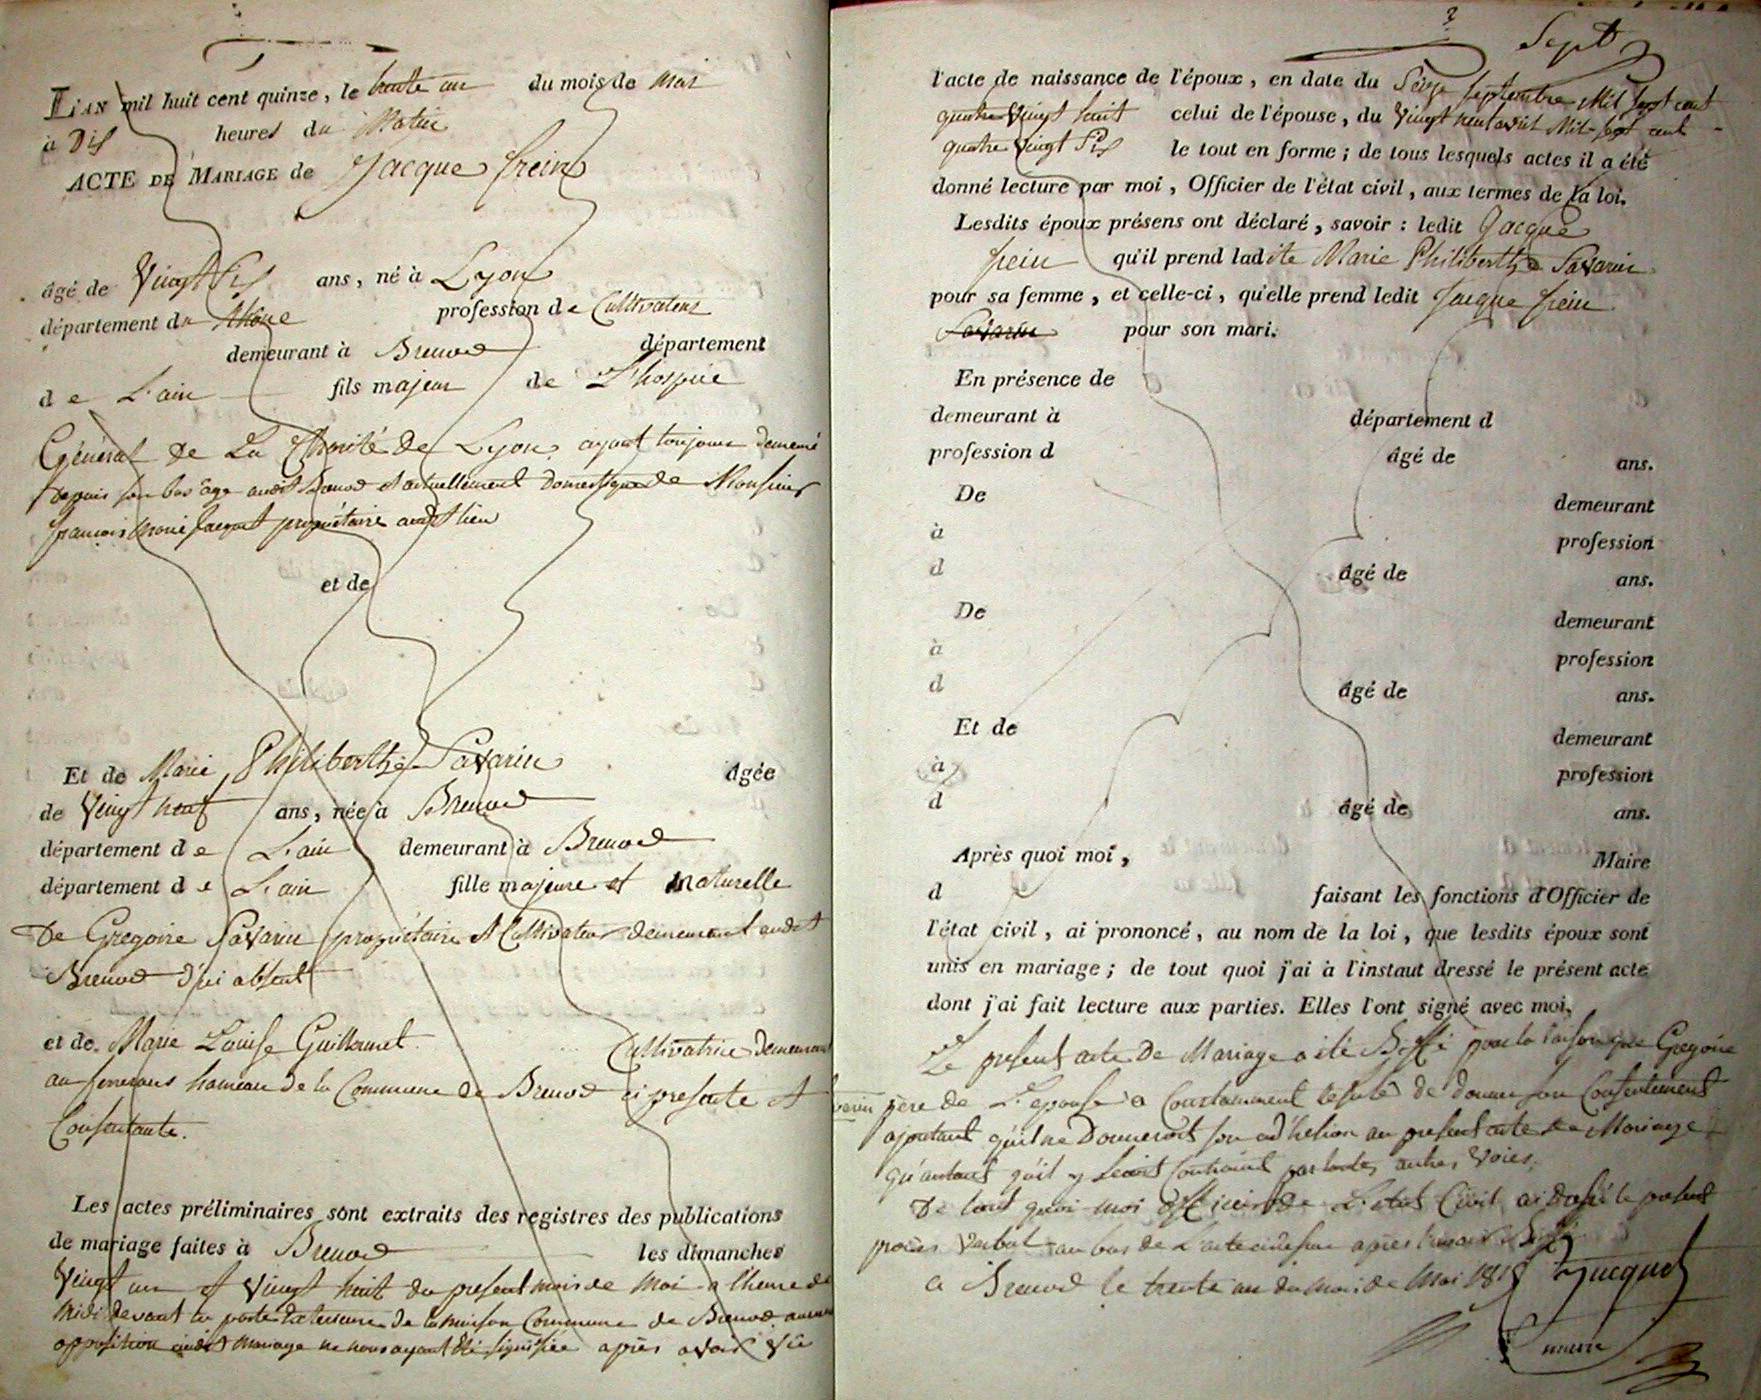 L'AN mil huit cent quinze, le trente un du mois de Mai
à Dix heures du Matin
ACTE DE MARIAGE de Jacque frein
âgé de Vingt Six ans, né à Lyon
département du Rhône profession de Cultivateur
demeurant à Brenod département
de L'ain fils majeur de L'hospice
Général De La Charité de Lyon ayant toujour demeuré
depuis son bas âge audit Brenod et actuellement Domestique de Monsieur
françois Marie Jacquet propriétaire audit lieu
et de
Et de Marie Philiberthe Savarin âgée
de Vingt neuf ans, née à Brenod
département de L'ain demeurant à Brenod
département de L'ain fille majeure et Naturelle
De Gregoire Savarin propriétaire et Cultivateur demeurant audit
Brenod d'ici absent
et de Marie Louise Guillermet Cultivatrice Demeurant
au hameau de la Commune de Brenod ici presente et
Consentante.
Les actes préliminaires sont extraits des registres des publications
de mariage faites à Brenod les dimanches
Vingt un et Vingt huit du present mois de Mai a l'heure de
Midi devant la porte exterieure de la maison Commune de Brenod aucune
opposition audit mariage ne nous ayant été signifiée après avoir Vû
Sept
l'acte de naissance de l'époux, en date du Seize septembre Mil sept cent
quatre Vingt huit celui de l'épouse, du Vingt neuf avril Mil sept cent
quatre Vingt Six le tout en forme ; de tous lesquels actes il a été
donné lecture par moi, Officier de l'état civil, aux termes de la loi.
Lesdits époux présens ont déclaré, savoir : ledit Jacque
frein qu'il prend ladite Marie Philiberthe Savarin
pour sa femme, et celle-ci, qu'elle prend ledit Jacque frein
Savarin pour son mari.
En présence de
demeurant à département d
profession d âgé de ans.
De demeurant
à profession
d âgé de ans.
De demeurant
à profession
d âgé de ans.
Et de demeurant
à profession
d âgé de ans.
Après quoi moi, Maire
d faisant les fonctions d'Officier de
l'état civil, ai prononcé, au nom de la loi, que lesdits époux sont
unis en mariage ; de tout quoi j'ai à l'instant dressé le présent acte
dont j'ai fait lecture aux parties. Elles l'ont signé avec moi.
Le present acte De Mariage a été Biffé pour la raison que Gregoire
père de L'epouse a Constamment refusé de donner son Consentement
ajoutant qu'il ne Donneroit son adhésion au present acte de Mariage
qu'autant qu'il y seroit contraint par toutes autres Voies.
De tout quoi moi officier de L'etat Civil ai dressé le present
procès Verbal au bas de L'acte cidessus après l'avoir Biffé
a Brenod le trente un du mois de Mai 1815 Jacquet
maire